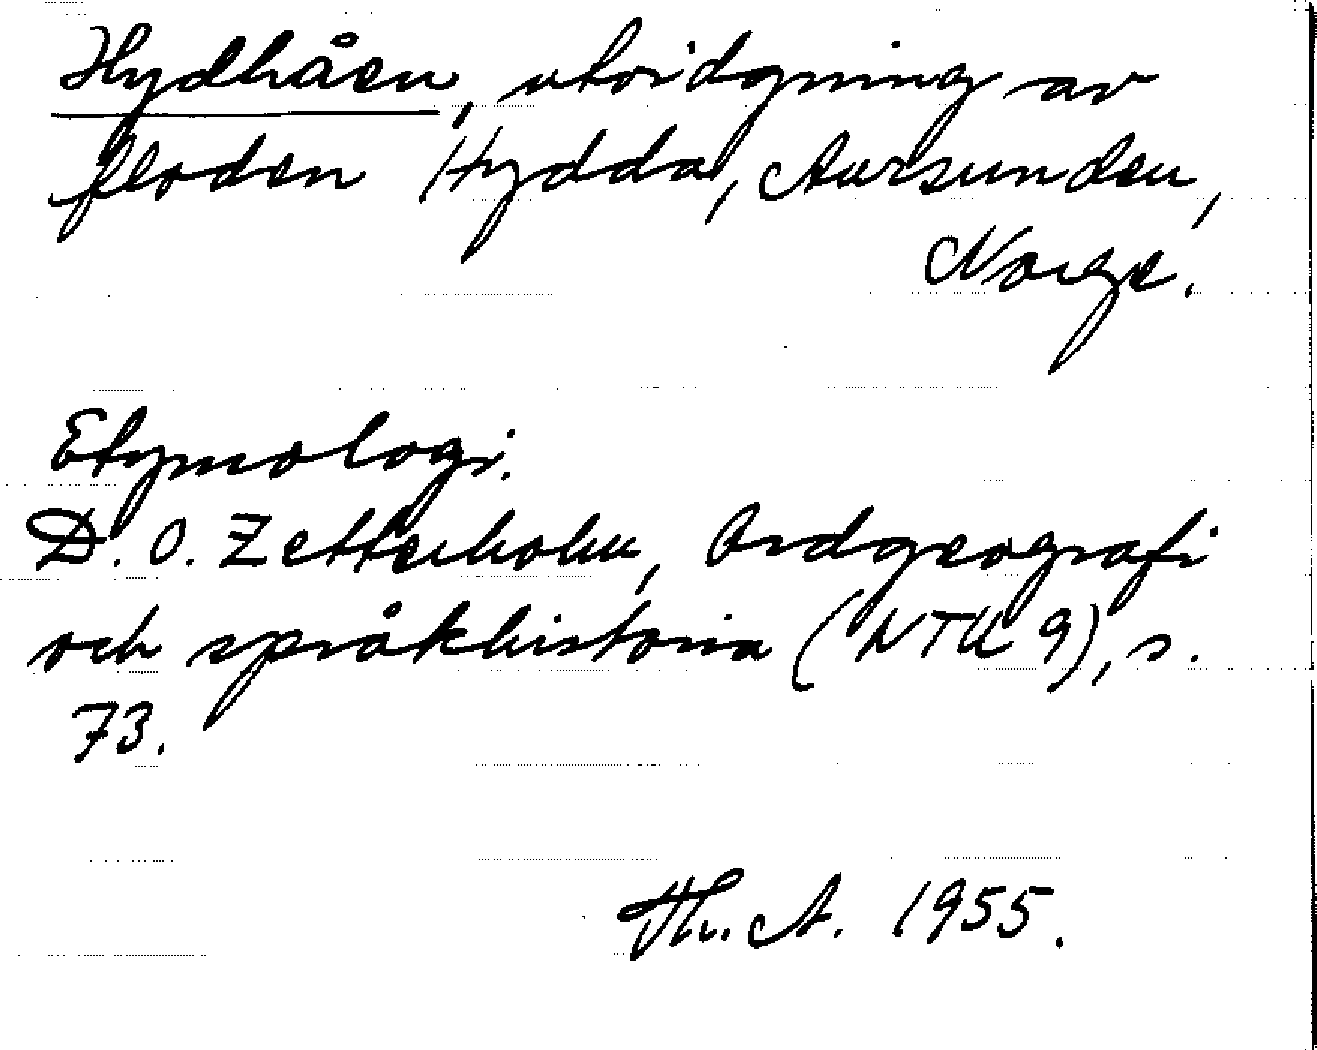 Hydhåen, utvidgning av
floden Hydda, Aursunden,
Norge.
Etymologi.
D. O. Zetterholm, Ordgeografi
och språkhistoria (NTU 9), s.
73.
Th. A. 1955.